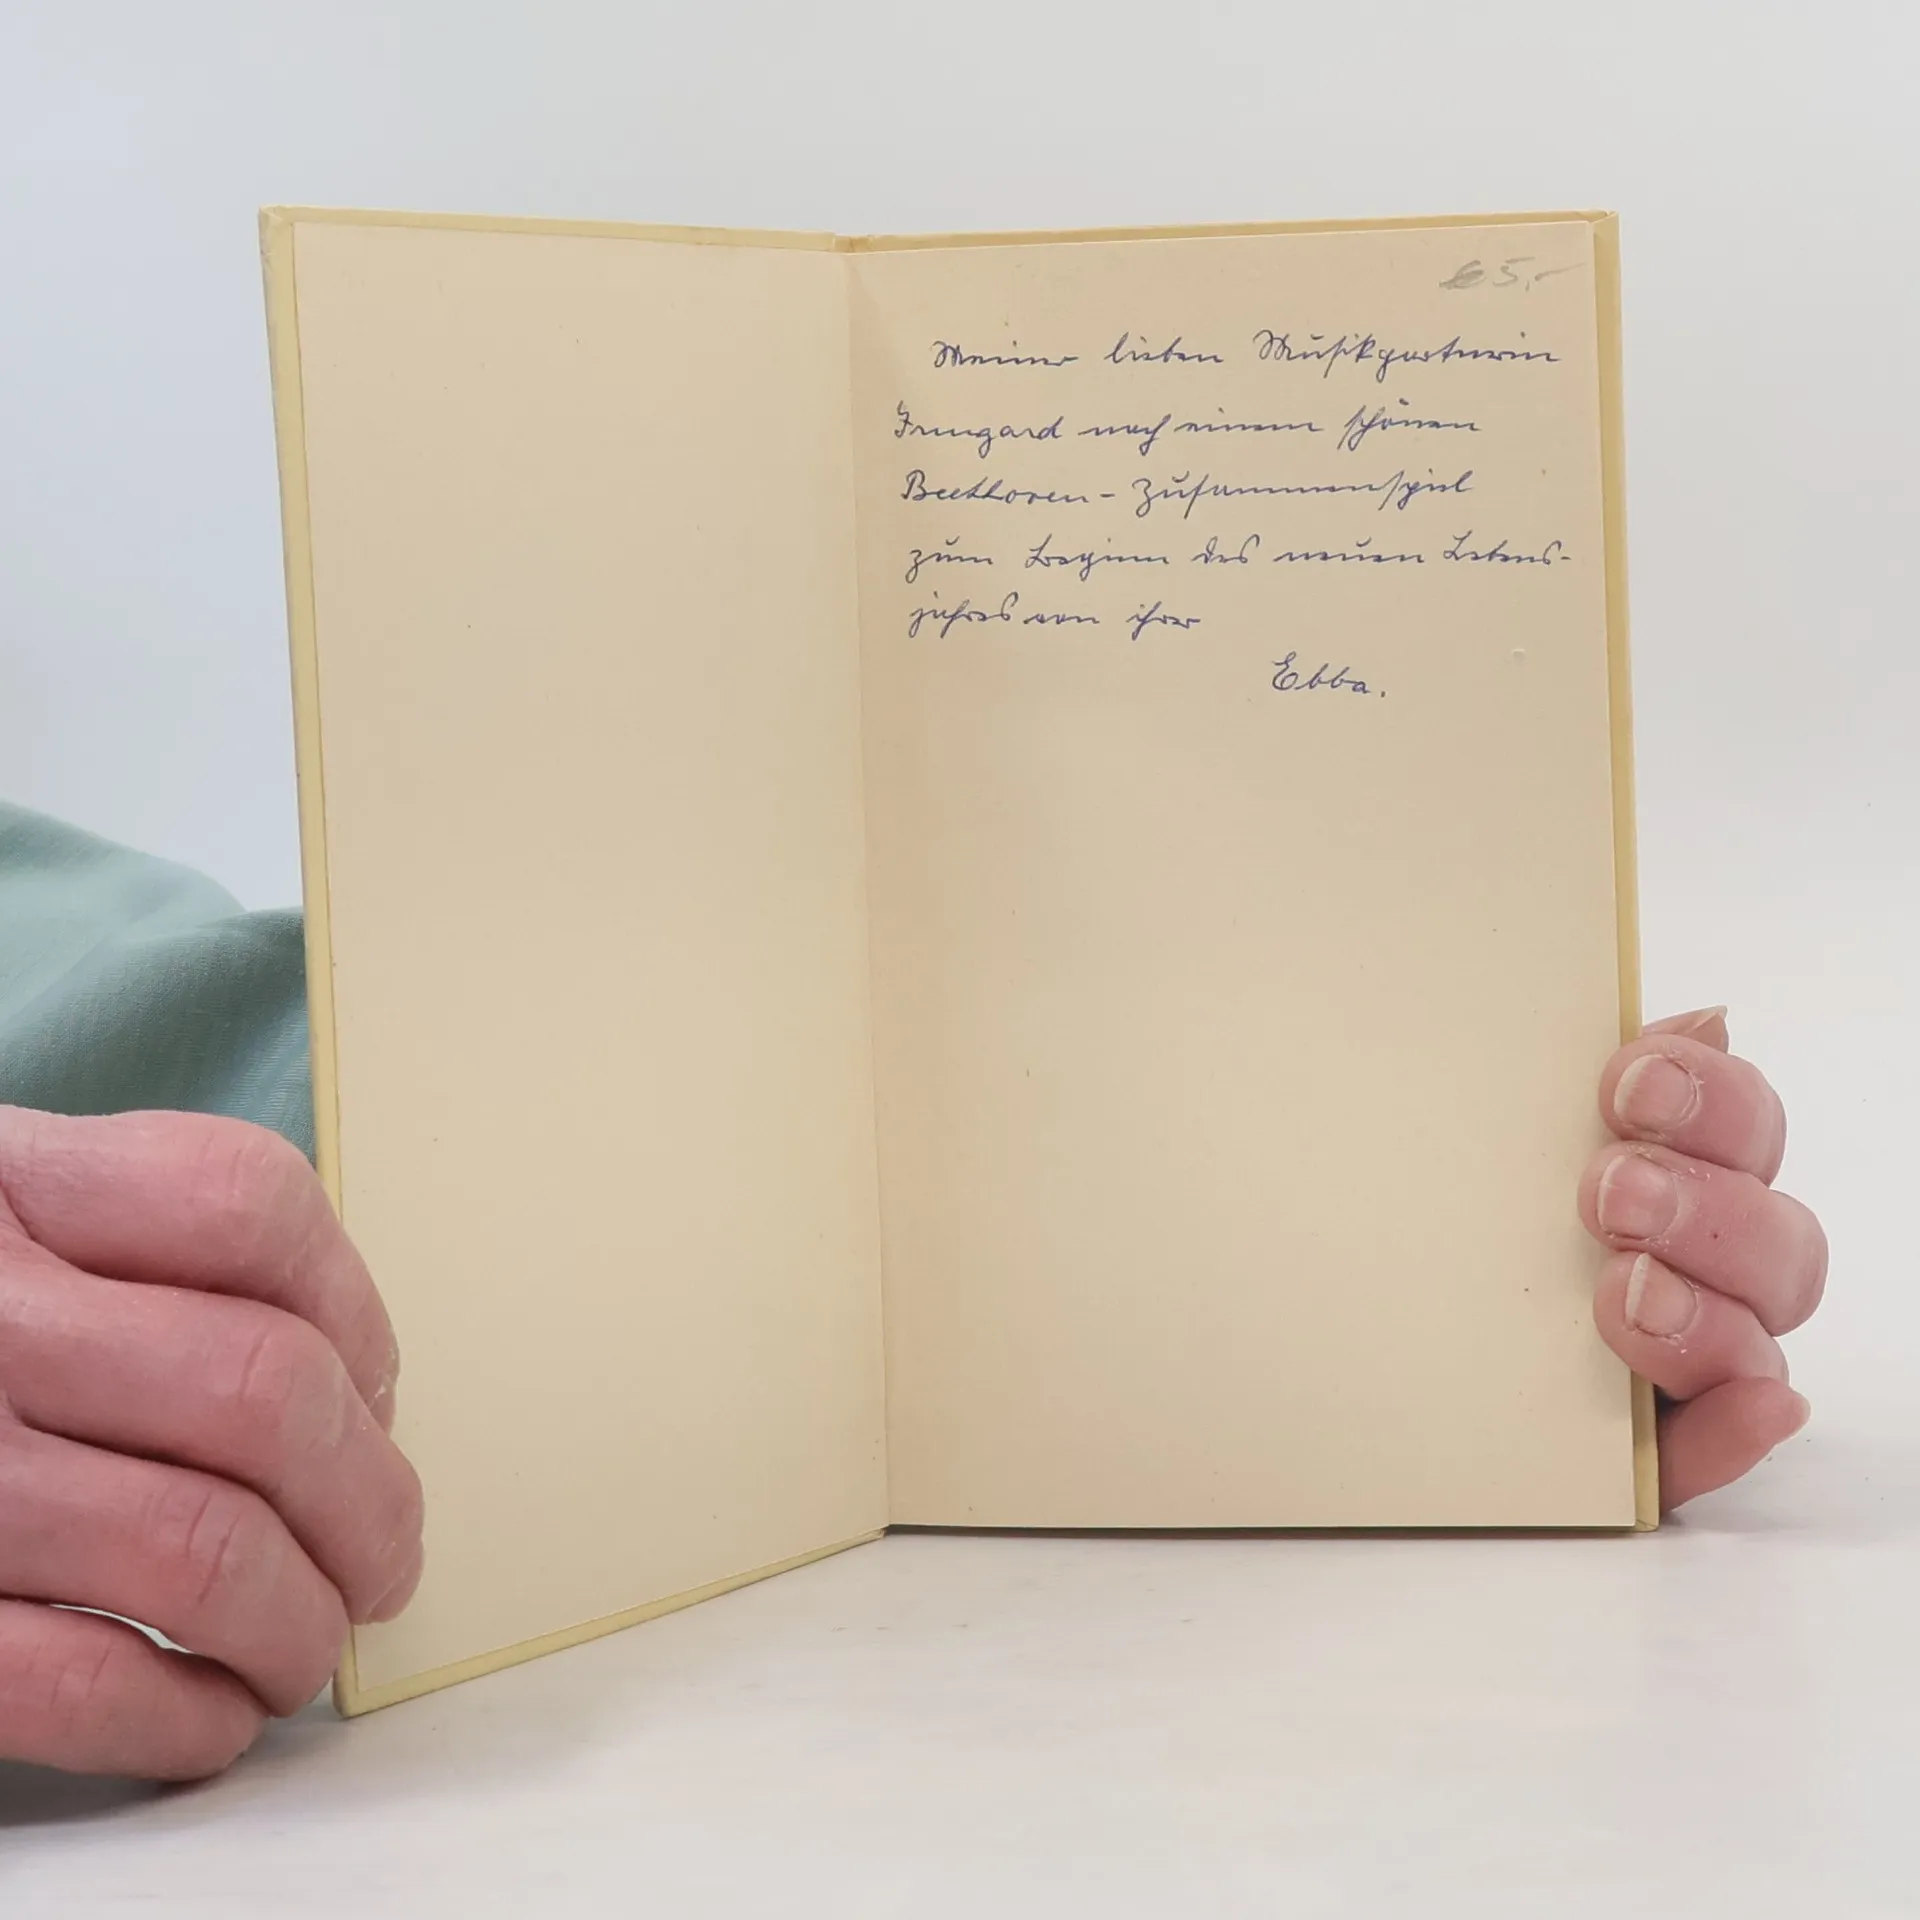 € 5,-
Meiner lieben Musikpartnerin
Irmgard nach einem schönen
Beethoven - Zusammenspiel
zum Beginn des neuen Lebens-
jahres von ihrer
Ebba.